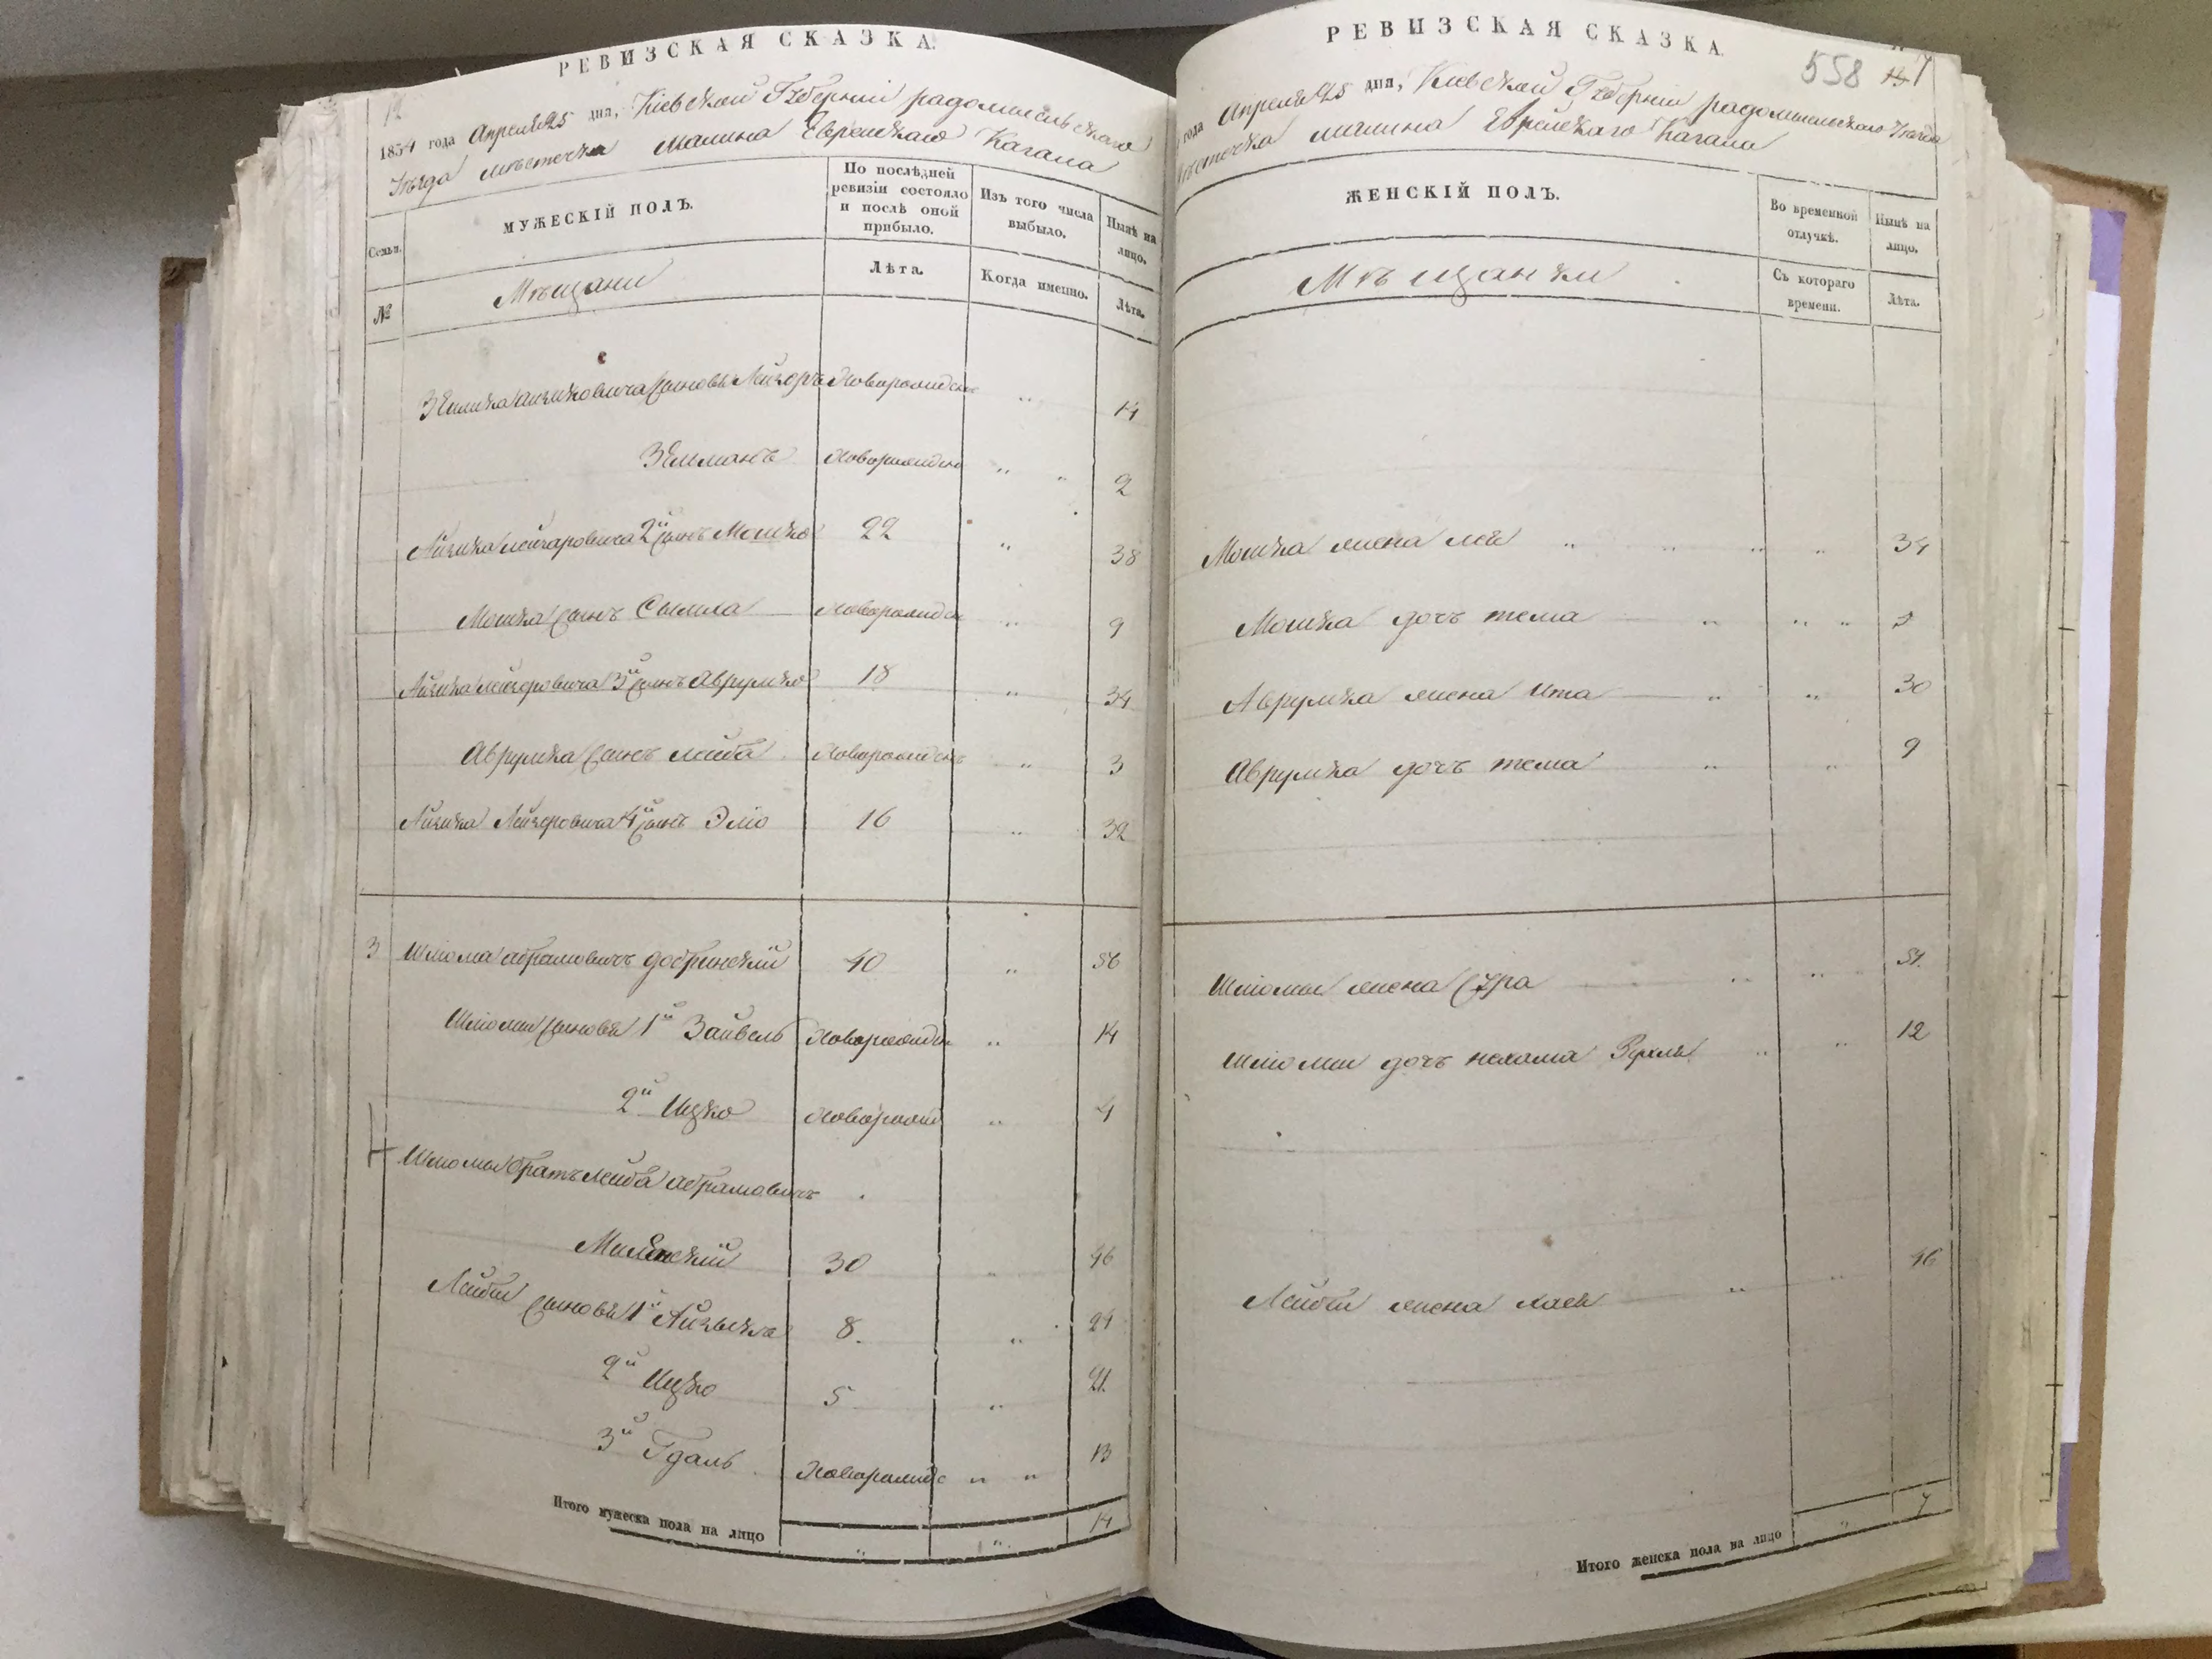 РЕВИЗСКАЯ СКАЗКА.
12
1854 года Апреля 25 дня, Кіевской Губерніи радомысльскаго
Уѣзда мѣстечка Малина Еврейскаго Кагала
Семьи.
МУЖЕСКІЙ ПОЛЪ.
По послѣдней ревизіи состояло и послѣ оной прибыло.
Изъ того числа выбыло.
Нынѣ на лицо.
№
Мѣщани
Лѣта.
Когда именно.
Лѣта.
Зелика Айзиковича сыновья Лейзоръ новорожден " 14
Зельманъ новорожден " " 2
Айзика Лейзаровича 2й сынъ Мошко 22 " 38
Мошка сынъ Сымха новорожден " 9
Айзика Лейзеровича 3й сынъ Аврумко 18 " 34
Аврумка сынъ лейба новорожденъ " 3
Айзика Лейзеровича 4й сынъ Эліо 16 " 32
3 Шліома абрамовичъ добринскій 40 " 56
Шліоми сыновья 1й Зайвель новорожден " 14
2й Ицко новорожд " 4
4 Шліомы братъ лейба абрамовичъ
30 " 46
Лейби сыновья 1й Айзыкъ 8. " 24
2й Ицко 5 " 21.
3й Гдаль новорожде " " 13
Итого мужеска пола на лицо " " 14
РЕВИЗСКАЯ СКАЗКА.
558
года Апреля 25 дня, Кіевской Губерніи радомысльскаго Уѣзда
мѣстечка малина Еврейскаго Кагала
ЖЕНСКІЙ ПОЛЪ.
Во временной отлучкѣ.
Нынѣ на лицо.
Мѣщанки
Съ котораго времени.
Лѣта.
Мошка жена лея " " " " 34
Мошка дочъ тема " " "
Аврумка жена Ита " " 30
Аврумка дочъ тема " " 9
Шліомы жена Сура " " 51.
Шліоми дочъ нехама Рухля " " 12
Лейби жена хая " " 46
Итого женска пола на лицо " 7